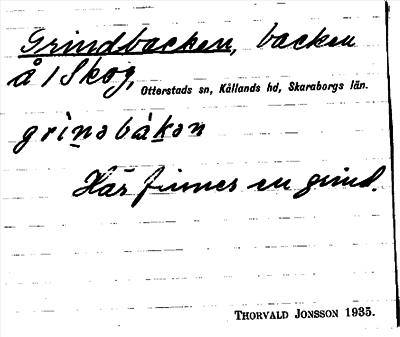 Grindbacken, backen
å 1 Skog, Otterstads sn, Kållands hd, Skaraborgs län.
grìn̠əbàk̠ən
Här finnes en grind.
THORVALD JONSSON 1935.